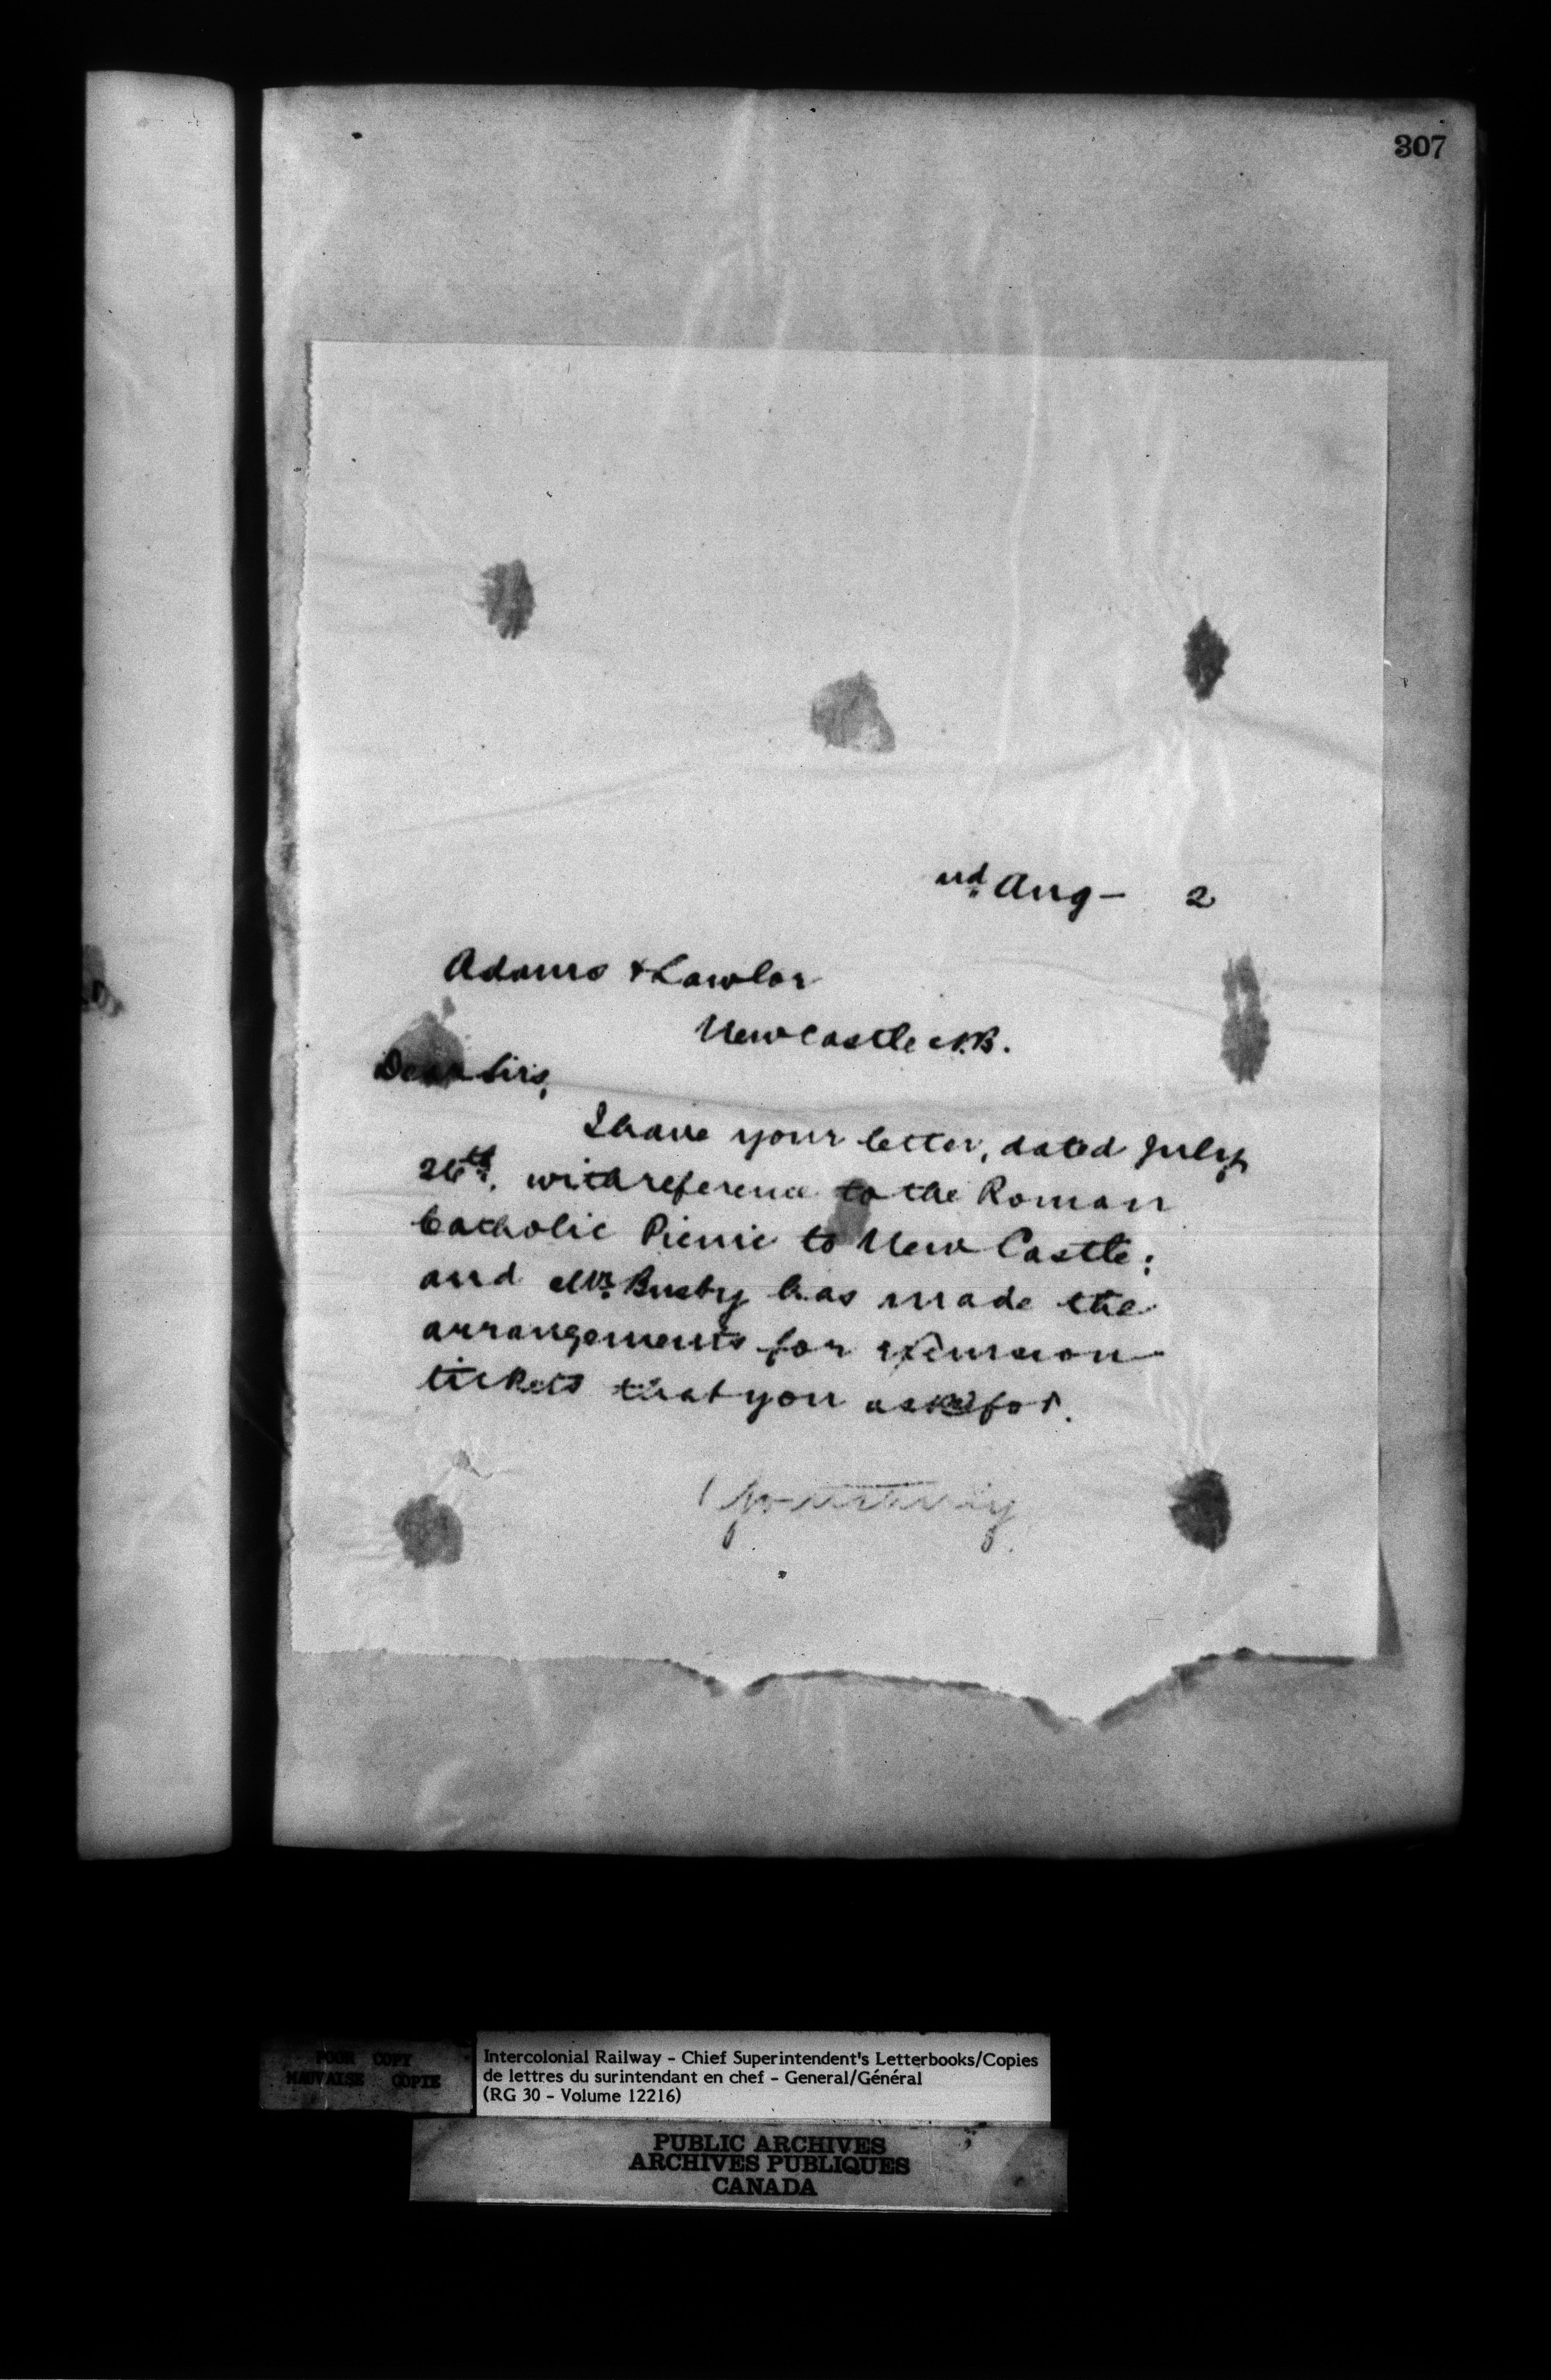 307
nd Aug - 2
Adams & Lawlor
New Castle N.B.
Dear Sirs,
I have your letter, dated July
26th. with reference to the Roman
Catholic Picnic to New Castle:
and Mr. Busby has made the
arrangements for excursion
tickets that you asked for.
Yours truly
POOR COPY
MAUVAISE COPIE
Intercolonial Railway - Chief Superintendent's Letterbooks/Copies
de lettres du surintendant en chef - General/Général
(RG 30 - Volume 12216)
PUBLIC ARCHIVES
ARCHIVES PUBLIQUES
CANADA